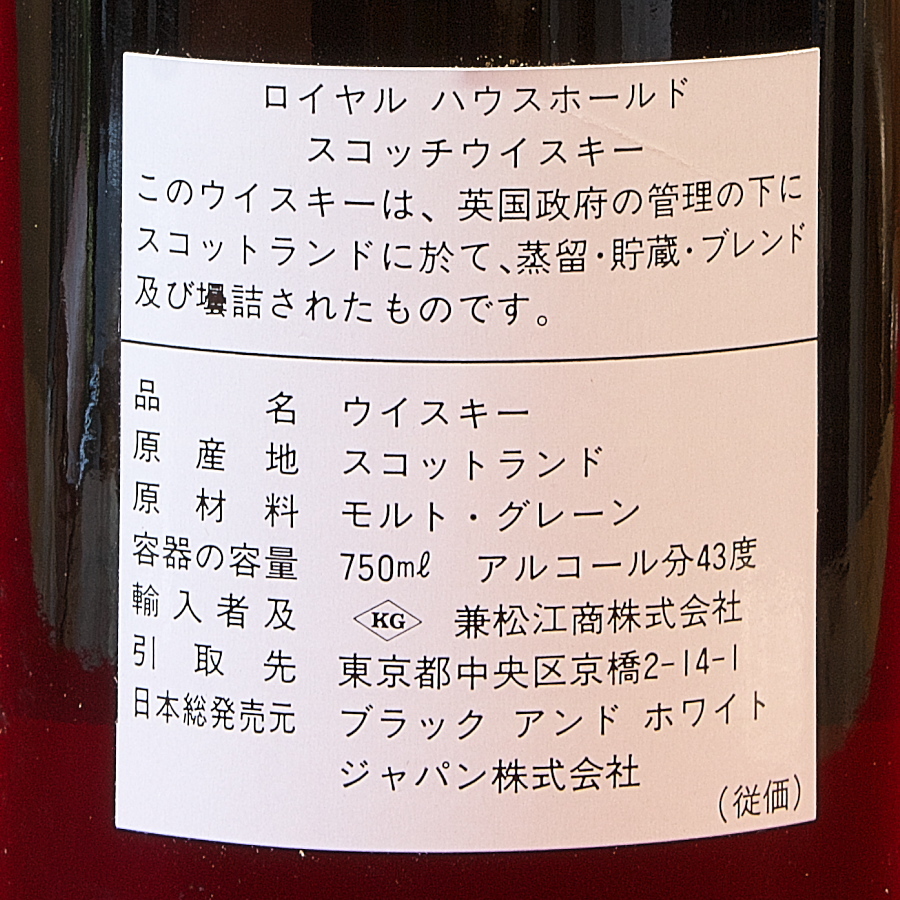 ロイヤル ハウスホールド
スコッチウイスキー
このウイスキーは、英国政府の管理の下に
スコットランドに於て、蒸留・貯蔵・ブレンド
及び壜詰されたものです。
品名 ウイスキー
原産地 スコットランド
原材料 モルト・グレーン
容器の容量 750mℓ アルコール分43度
輸入者及 KG 兼松江商株式会社
引取先 東京都中央区京橋2-14-1
日本総発売元 ブラック アンド ホワイト
ジャパン株式会社
(従価)